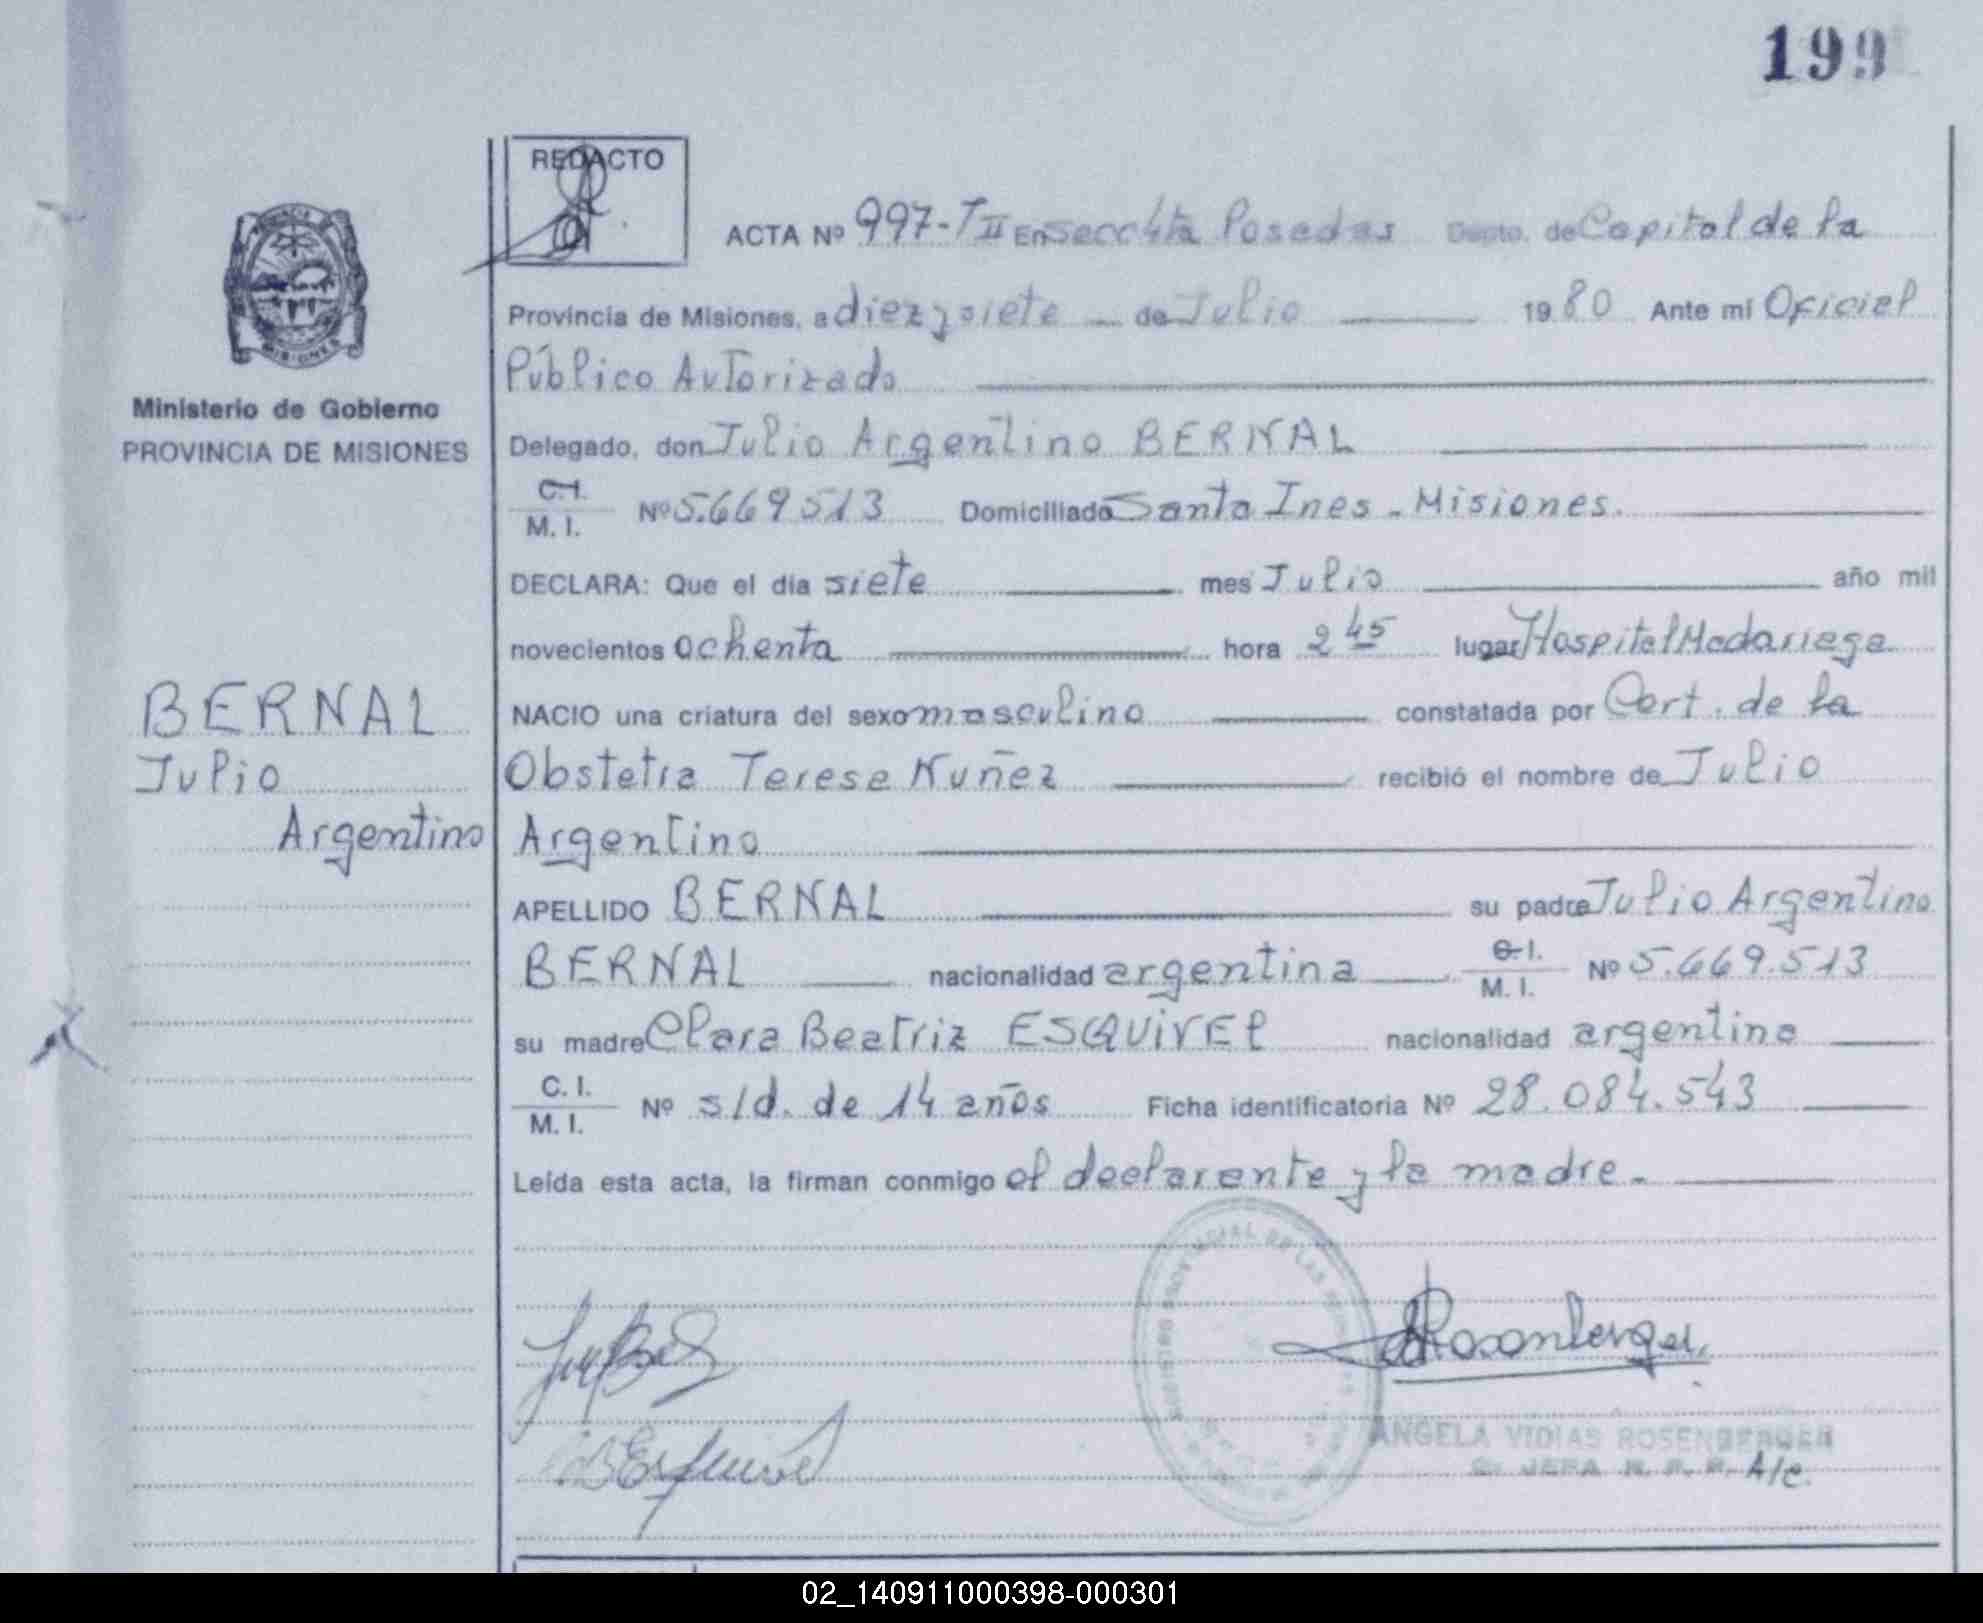 199
REDACTO
ACTA Nº 997-TII En Secc 4ta Posadas Depto. de Capital de la
Provincia de Misiones, a diez y siete de Julio 1980 Ante mí Oficial
Público Autorizado
Ministerio de Gobierno
PROVINCIA DE MISIONES
Delegado, don Julio Argentino BERNAL
C.I.
M. I. Nº 5.669.513 Domiciliado Santa Ines - Misiones.
DECLARA: Que el día siete mes Julio año mil
novecientos ochenta hora 2 45 lugar Hospital Madariaga
BERNAL
Julio
Argentino
NACIO una criatura del sexo masculino constatada por Cert. de la
Obstetra Teresa Nuñez recibió el nombre de Julio
Argentino
APELLIDO BERNAL su padre Julio Argentino
BERNAL nacionalidad argentina C.I.
M. I. Nº 5.669.513
su madre Clara Beatriz ESQUIVEL nacionalidad argentina
C. I.
M. I. Nº s/d. de 14 años Ficha identificatoria Nº 28.084.543
Leída esta acta, la firman conmigo el declarante y la madre.-
Rosenberger
Esquivel
ANGELA VIDIAS ROSENBERGER
JEFA R. P. P. A/c.
02_140911000398-000301